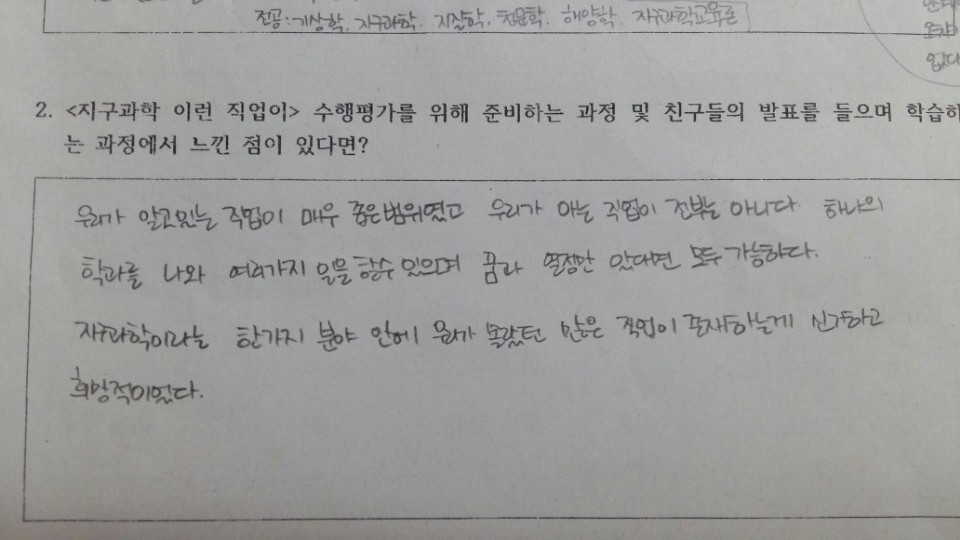 전공: 기상학, 지구과학, 지질학, 천문학, 해양학, 지구과학교육론
없다
2. <지구과학 이런 직업이> 수행평가를 위해 준비하는 과정 및 친구들의 발표를 들으며 학습하
는 과정에서 느낀 점이 있다면?
우리가 알고있는 직업이 매우 좁은범위였고 우리가 아는 직업이 전부는 아니다. 하나의
학과를 나와 여러가지 일을 할수 있으며 꿈과 열정만 있다면 모두 가능하다.
지구과학이라는 한가지 분야 안에 우리가 몰랐던 많은 직업이 존재하는게 신기하고
희망적이었다.